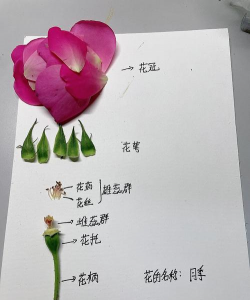 →花冠
花萼
花药
花丝
雄蕊群
→雌蕊群
→花托
→花柄
花的名称：月季